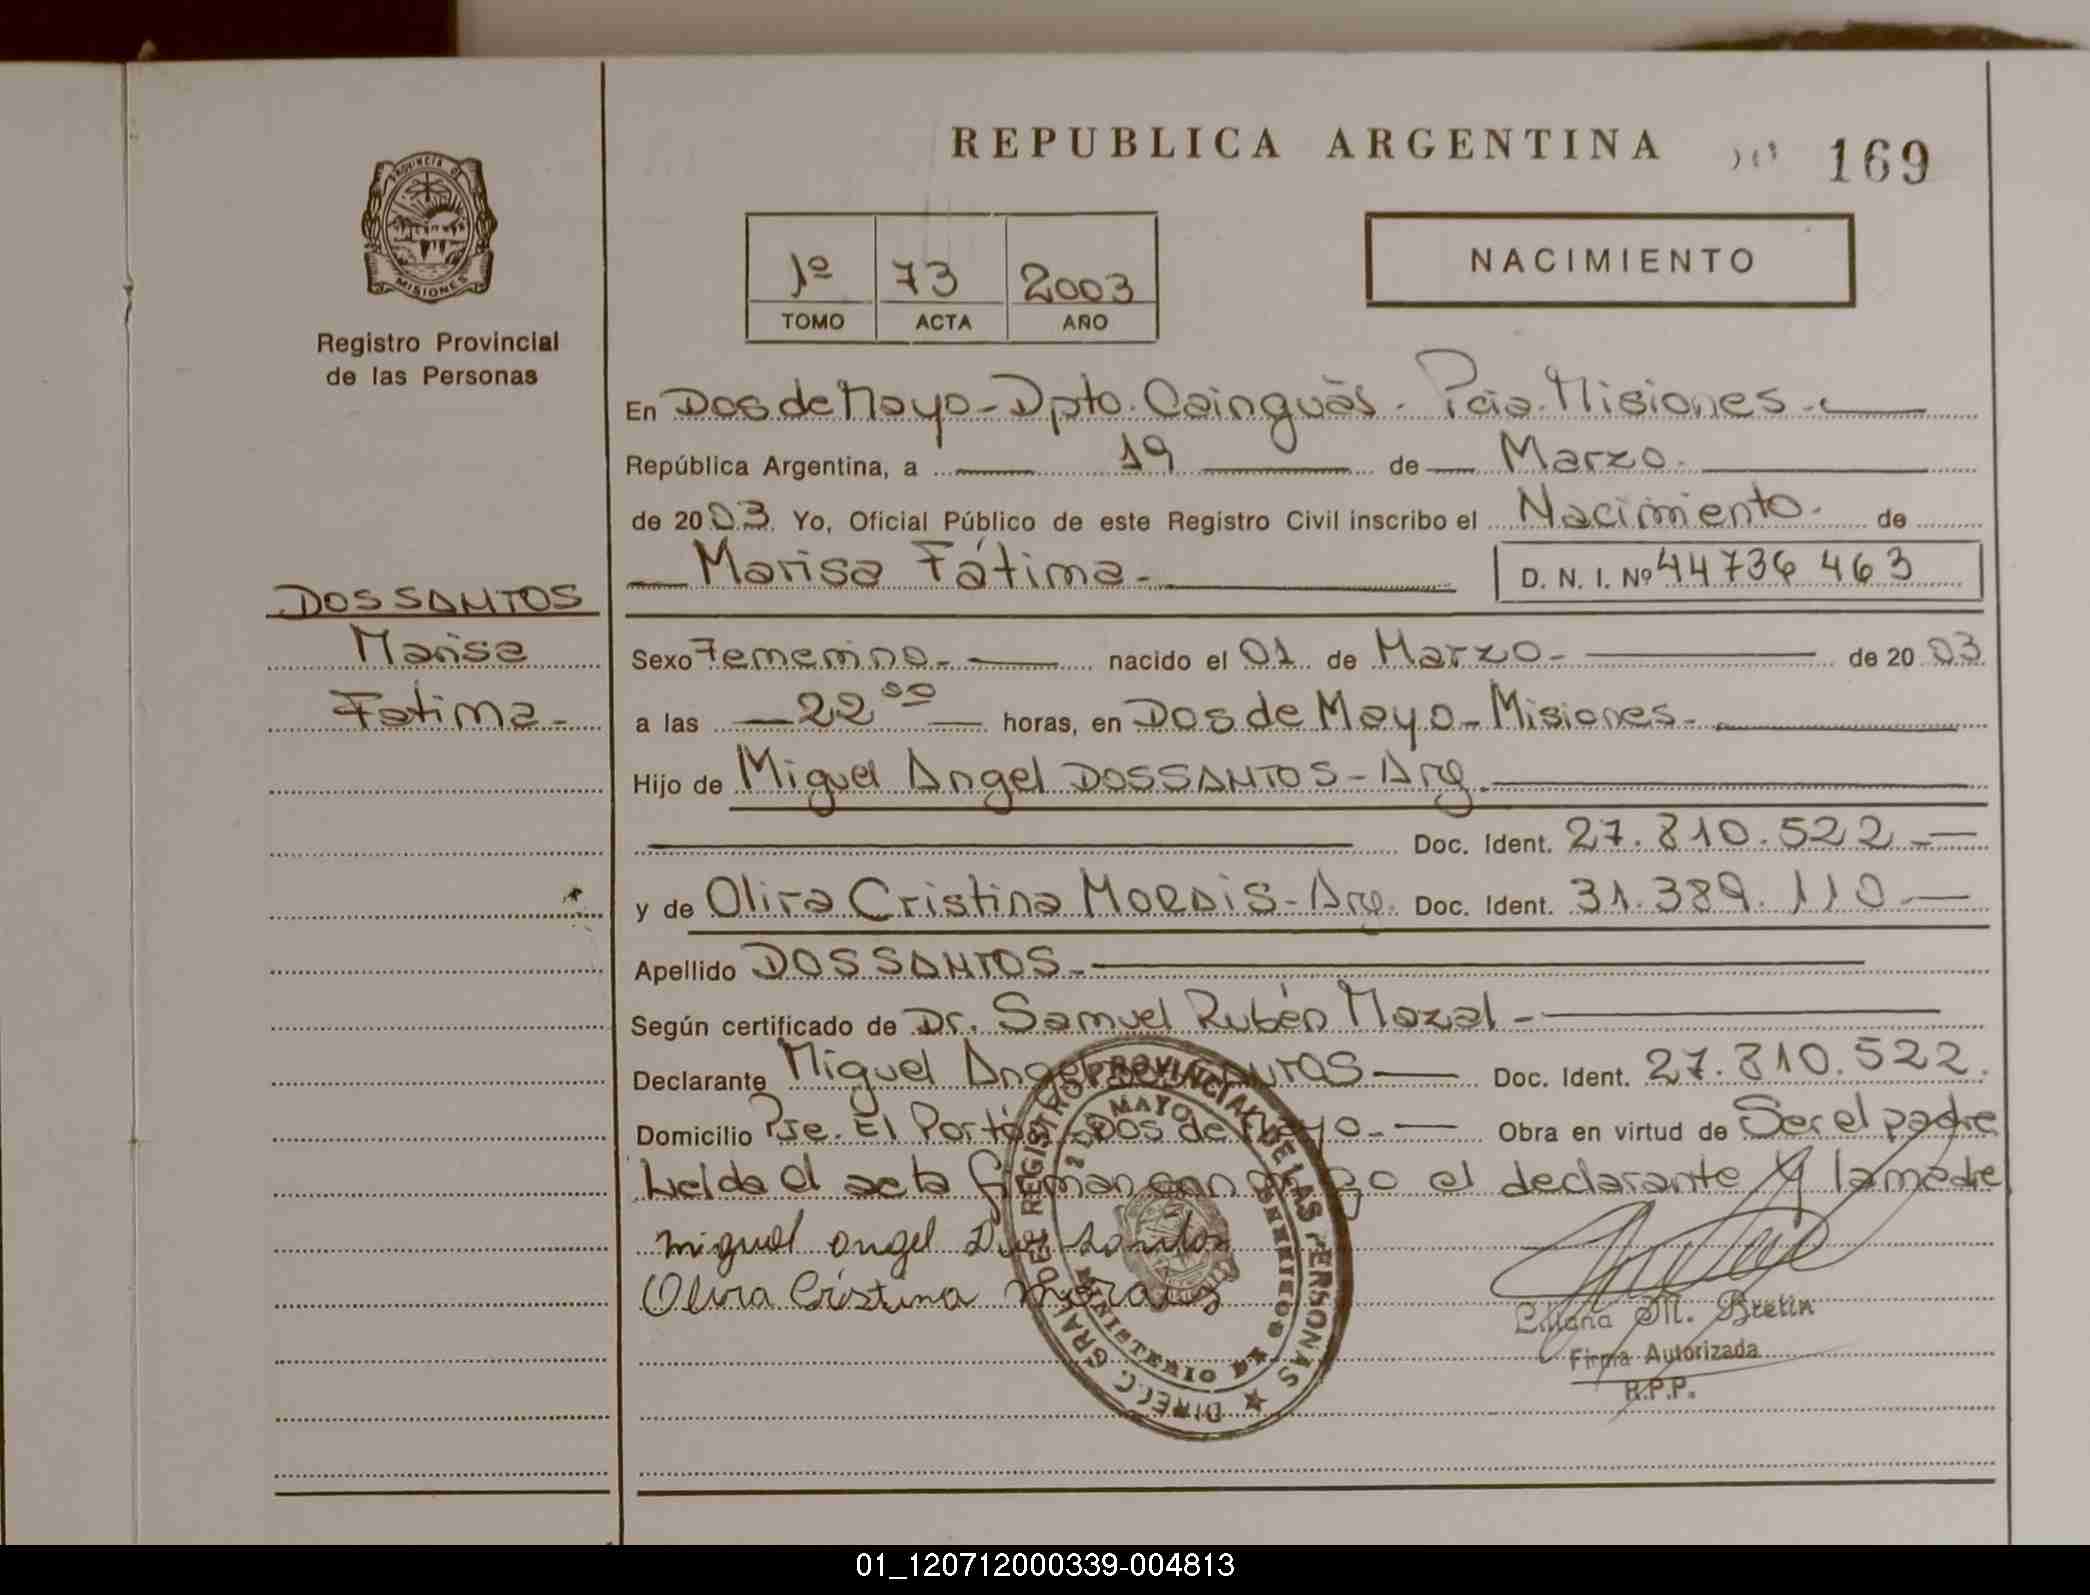 REPUBLICA ARGENTINA 169
PROVINCIA DE
MISIONES
Registro Provincial
de las Personas
1º 73 2003
TOMO ACTA AÑO
NACIMIENTO
En Dos de Mayo - Dpto. Cainguás - Pcia. Misiones.-
República Argentina, a 19 de Marzo.
de 2003. Yo, Oficial Público de este Registro Civil inscribo el Nacimiento. de
Marisa Fátima.- D. N. I. Nº 44736 463
DOSSANTOS
Marisa
Fatima-
Sexo Femenino.- nacido el 01 de Marzo- de 2003
a las 22 00 horas, en Dos de Mayo - Misiones-
Hijo de Miguel Angel DOSSANTOS - Arg.
Doc. Ident. 27.810.522.-
y de Olira Cristina MORAIS - Arg. Doc. Ident. 31.389.110.-
Apellido DOSSANTOS-
Según certificado de Dr. Samuel Rubén Mazal-
Declarante Miguel Angel DOSSANTOS Doc. Ident. 27.810.522.
Domicilio Pje. El Portón - Dos de Mayo.- Obra en virtud de Ser el padre
Leida el acta firman conmigo el declarante y la madre
miguel angel Dos santos
Olira Cristina Morais
DIREC. GRAL. DEL REGISTRO PROVINCIAL DE LAS PERSONAS
2 DE MAYO
MINISTERIO DE GOBIERNO
Liliana M. Bretin
Firma Autorizada
R.P.P.
01_120712000339-004813